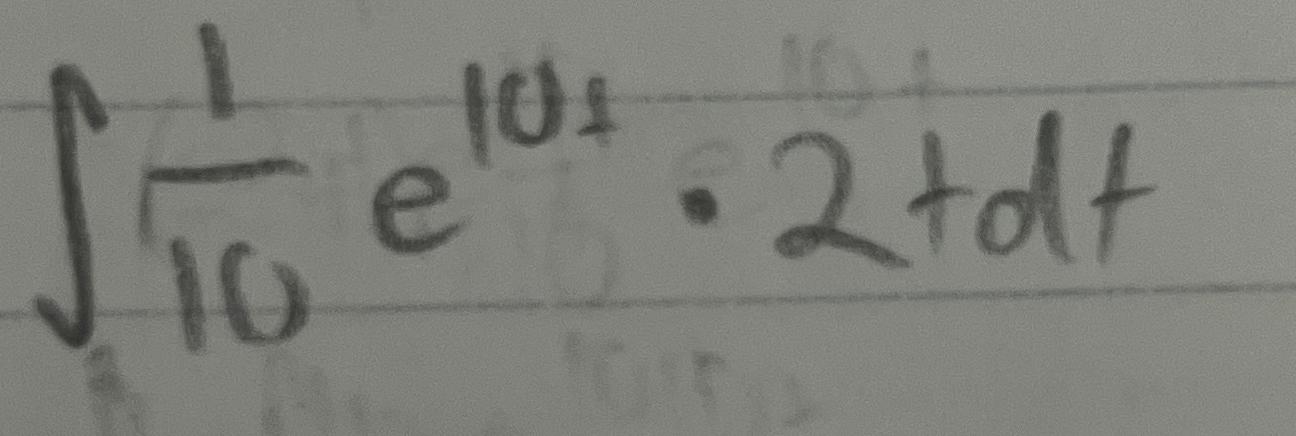 ∫ 1/10 e^{10t} · 2t dt